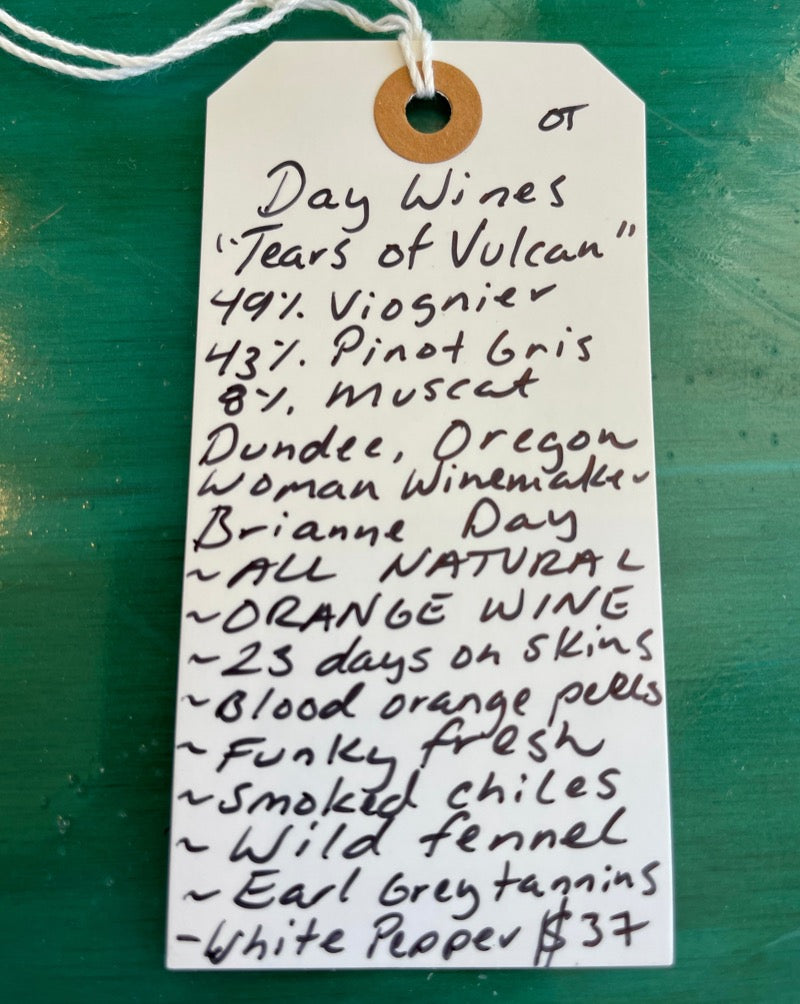 OT
Day Wines
"Tears of Vulcan"
49% Viognier
43% Pinot Gris
8% Muscat
Dundee, Oregon
Woman Winemaker
Brianne Day
~ALL NATURAL
~ORANGE WINE
~23 days on skins
~Blood orange peels
~Funky fresh
~Smoked chiles
~Wild fennel
~Earl Grey tannins
-White Pepper $37